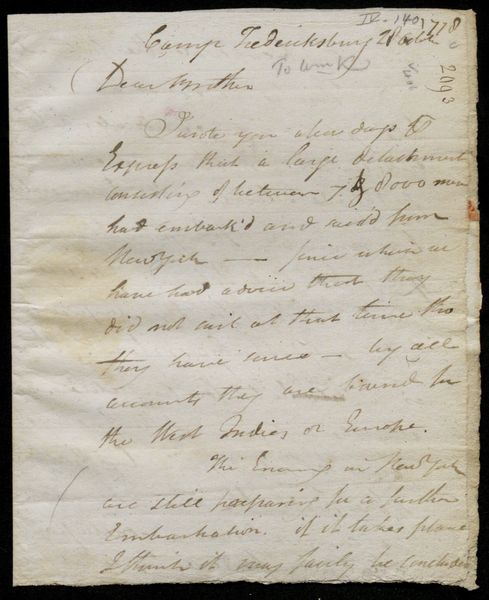 IV-140 1778
Camp Fredericksburg 28 Octr
To Wm K
2093
Dear Brother
I wrote you a few days
Express that a large detachment
consisting of between 7 & 8000 men
had embark'd and sail'd from
New York — since which we
have had advice that they
did not sail at that time tho
they have since — by all
accounts they are bound for
the West Indies or Europe.
The Enemy in New York
are still preparing for a further
Embarkation. if it takes place
I think it may fairly be concluded